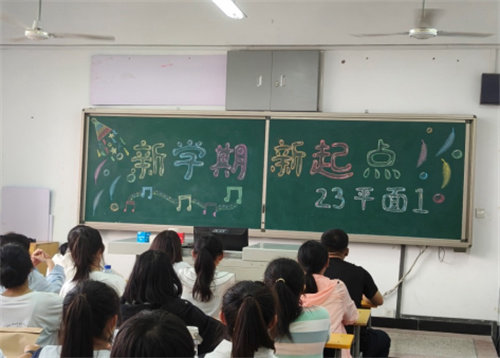 新学期 新起点
23平面1